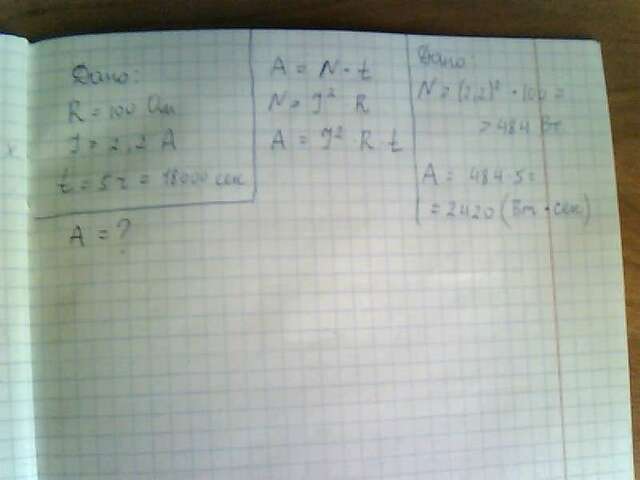 Дано:
R = 100 Ом
J = 2,2 А
t = 5 ч = 18000 сек
A = ?
A = N · t
N = J² · R
A = J² · R · t
Дано:
N = (2,2)² · 100 =
= 484 Вт
A = 484 · 5 =
= 2420 (Вт · сек)